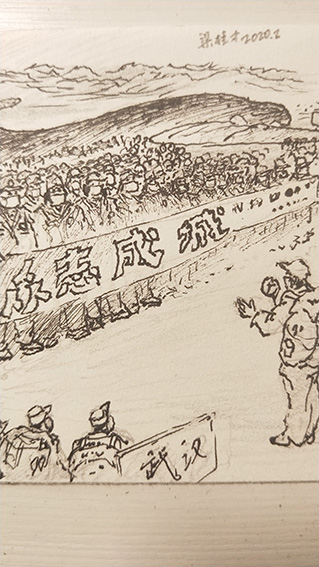 梁桂才2020.2
众志成城
武汉